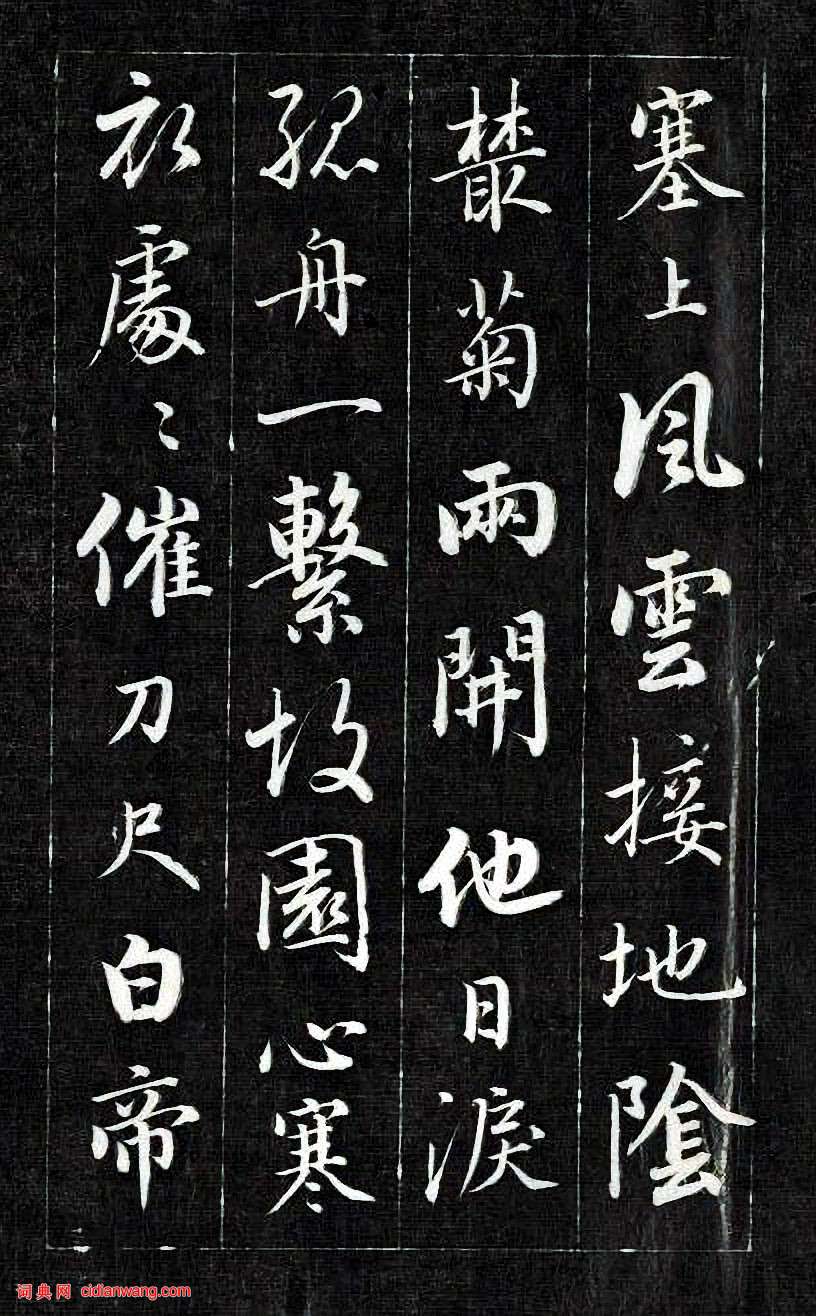 塞上風雲接地陰
叢菊兩開他日淚
孤舟一繫故園心寒
衣處〻催刀尺白帝
词典网 cidianwang.com